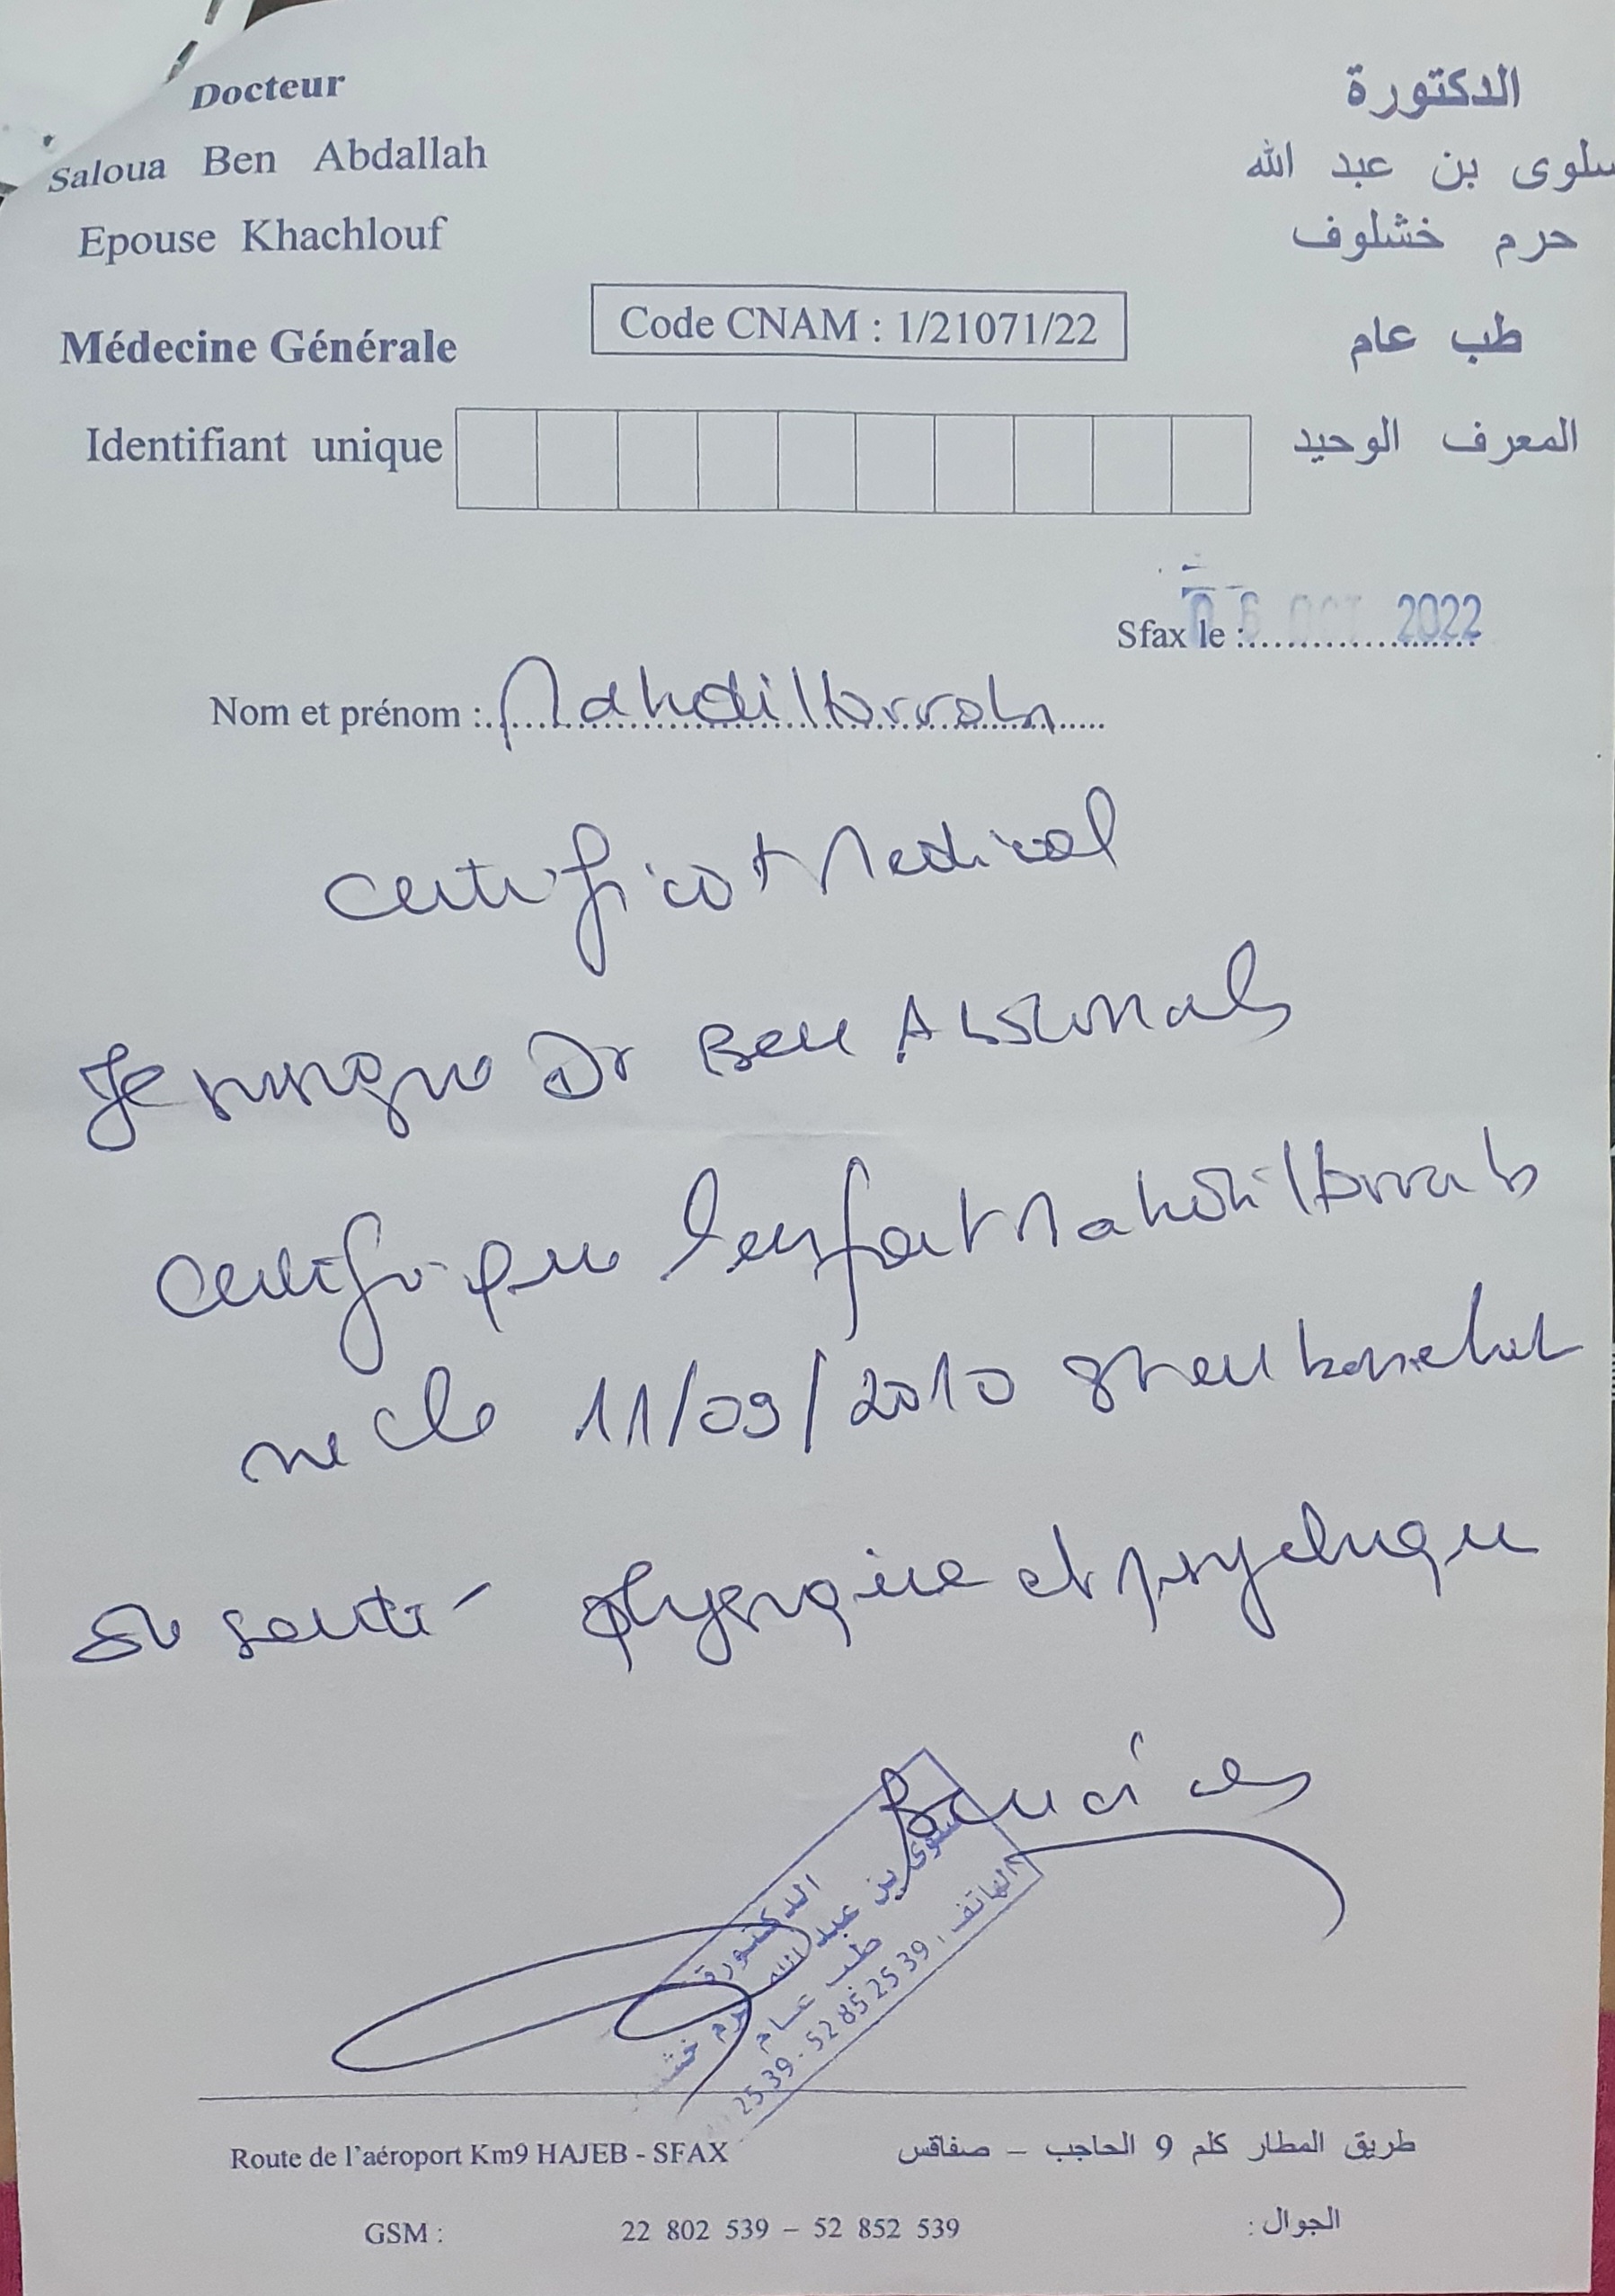 Docteur
Saloua Ben Abdallah
Epouse Khachlouf
Médecine Générale
Code CNAM : 1/21071/22
Identifiant unique
الدكتورة
سلوى بن عبد الله
حرم خشلوف
طب عام
المعرف الوحيد
Sfax le : 06 OCT 2022
Nom et prénom : Mahdi
Certificat Medical
Je soussigné Dr Ben Abdallah
certifie que l'enfant Mahdi
né le 11/09/2010 est en bon état
de santé physique et psychique
الدكتورة
سلوى بن عبد الله حرم
طب عام
الهاتف : 52 85 25 39 - 25 39
Route de l'aéroport Km9 HAJEB - SFAX
طريق المطار كلم 9 الحاجب – صفاقس
GSM : 22 802 539 – 52 852 539 الجوال :